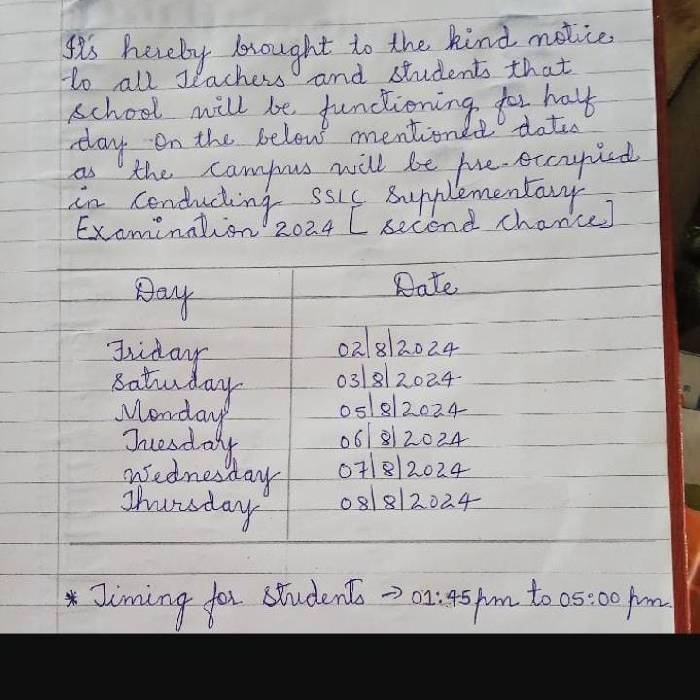 It's hereby brought to the kind notice
to all Teachers and students that
school will be functioning for half
day on the below mentioned dates
as the campus will be pre-occupied
in conducting SSLC Supplementary
Examination 2024 [ second chance]
Day Date
Friday 02/8/2024
Saturday 03/8/2024
Monday 05/8/2024
Tuesday 06/8/2024
Wednesday 07/8/2024
Thursday 08/8/2024
* Timing for students → 01:45pm to 05:00 pm.